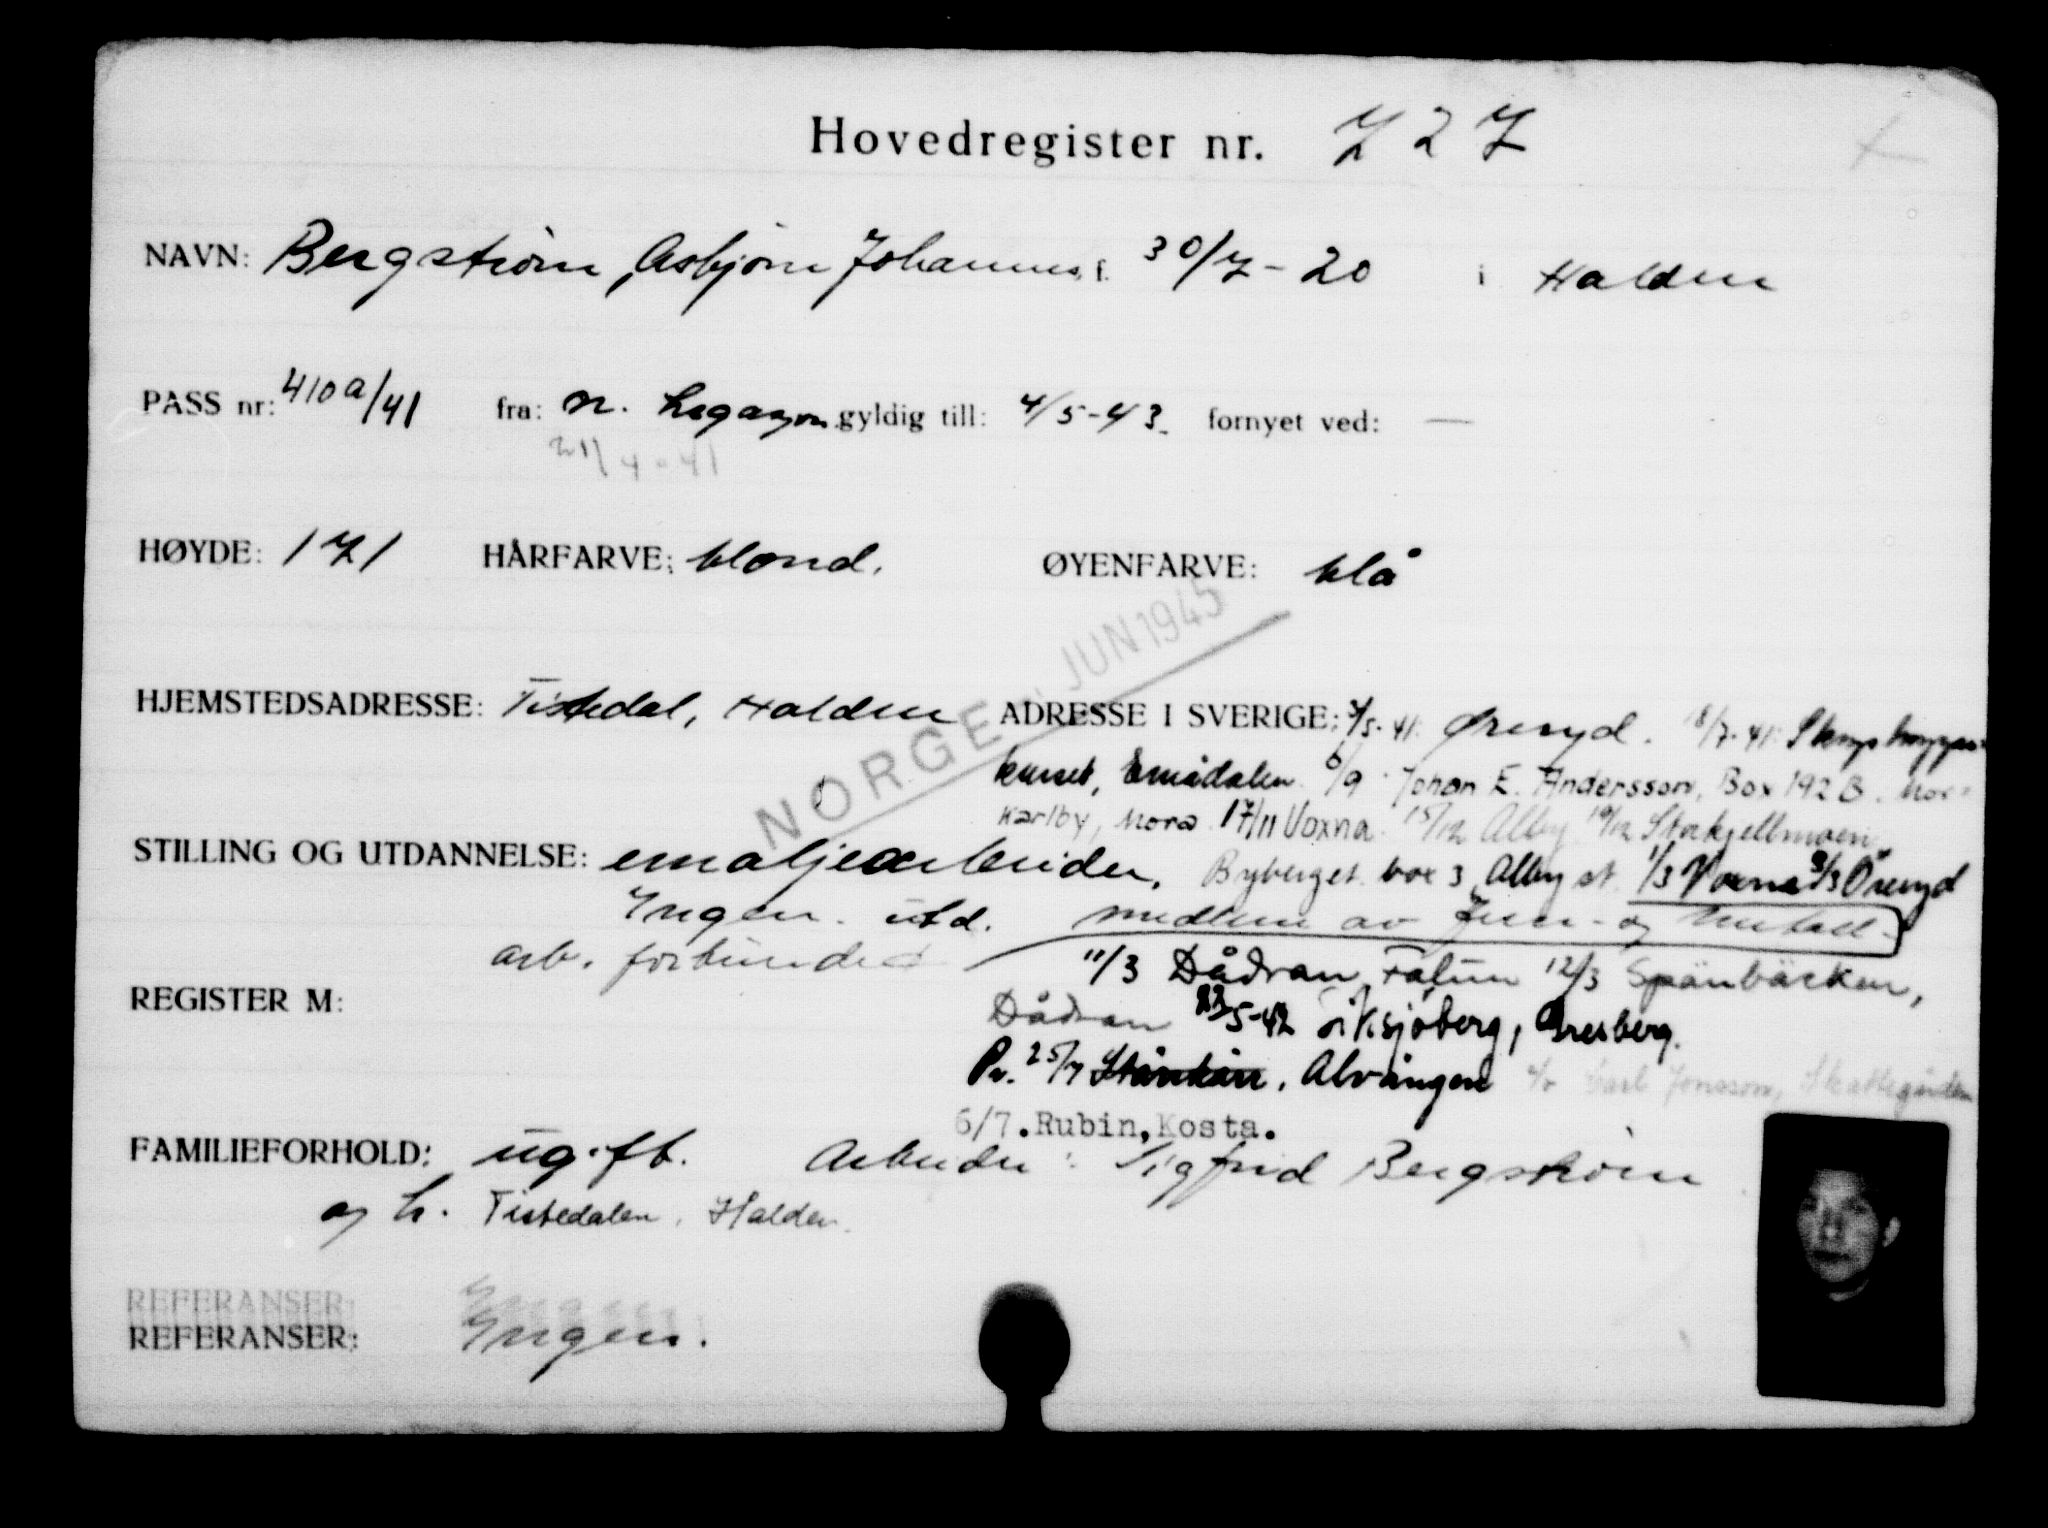 Hovedregister nr. 727
NAVN: Bergstrøm, Asbjørn Johannes f. 30/7-20 i Halden
PASS nr: 410a/41 fra: N. Legasjon. gyldig till: 4/5-43. fornyet ved: —
21/4-41
HØYDE: 171 HÅRFARVE: blond. ØYENFARVE: blå
NORGE JUN 1945
HJEMSTEDSADRESSE: Tistedal, Halden ADRESSE I SVERIGE: 3/5-41: Øreryd. 18/7-41:
kurset, Emådalen 6/9 Johan E. Andersson, Box 192 B. Mor-
Karlby, Mora 17/11 Voxna 15/12 Alby 19/12
STILLING OG UTDANNELSE: emaljearbeider. Byberget box 3 Alby st. 1/3 Voxna 3/3 Öreryd
Ingen utd. medlem av Jern- og Metall-
arb. forbundet
11/3 Dådran, Falun 12/3 Spånbäcken,
REGISTER M:
Dådran 23/5-42 Siksjöberg, Gresberg.
Pr. 25/7 Starrkärr, Alvängen c/o Carl Jonsson, Skattegården
6/7. Rubin, Kosta.
FAMILIEFORHOLD: ugift. Arbeider: Sigfrid Bergstrøm
og h. Tistedalen, Halden.
REFERANSER:
REFERANSER: Ingen.